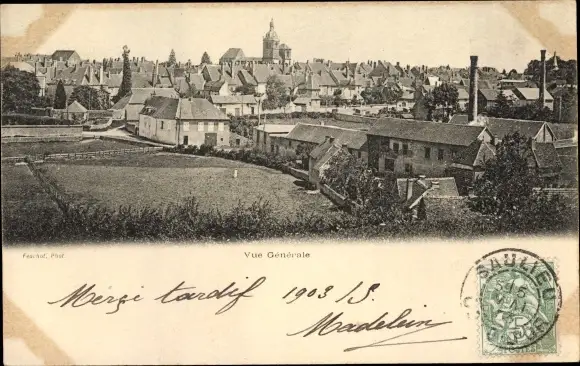 Feschuf, Phot.
Vue Générale
Mergi tardif 1903
Madeleine
SAULIEU